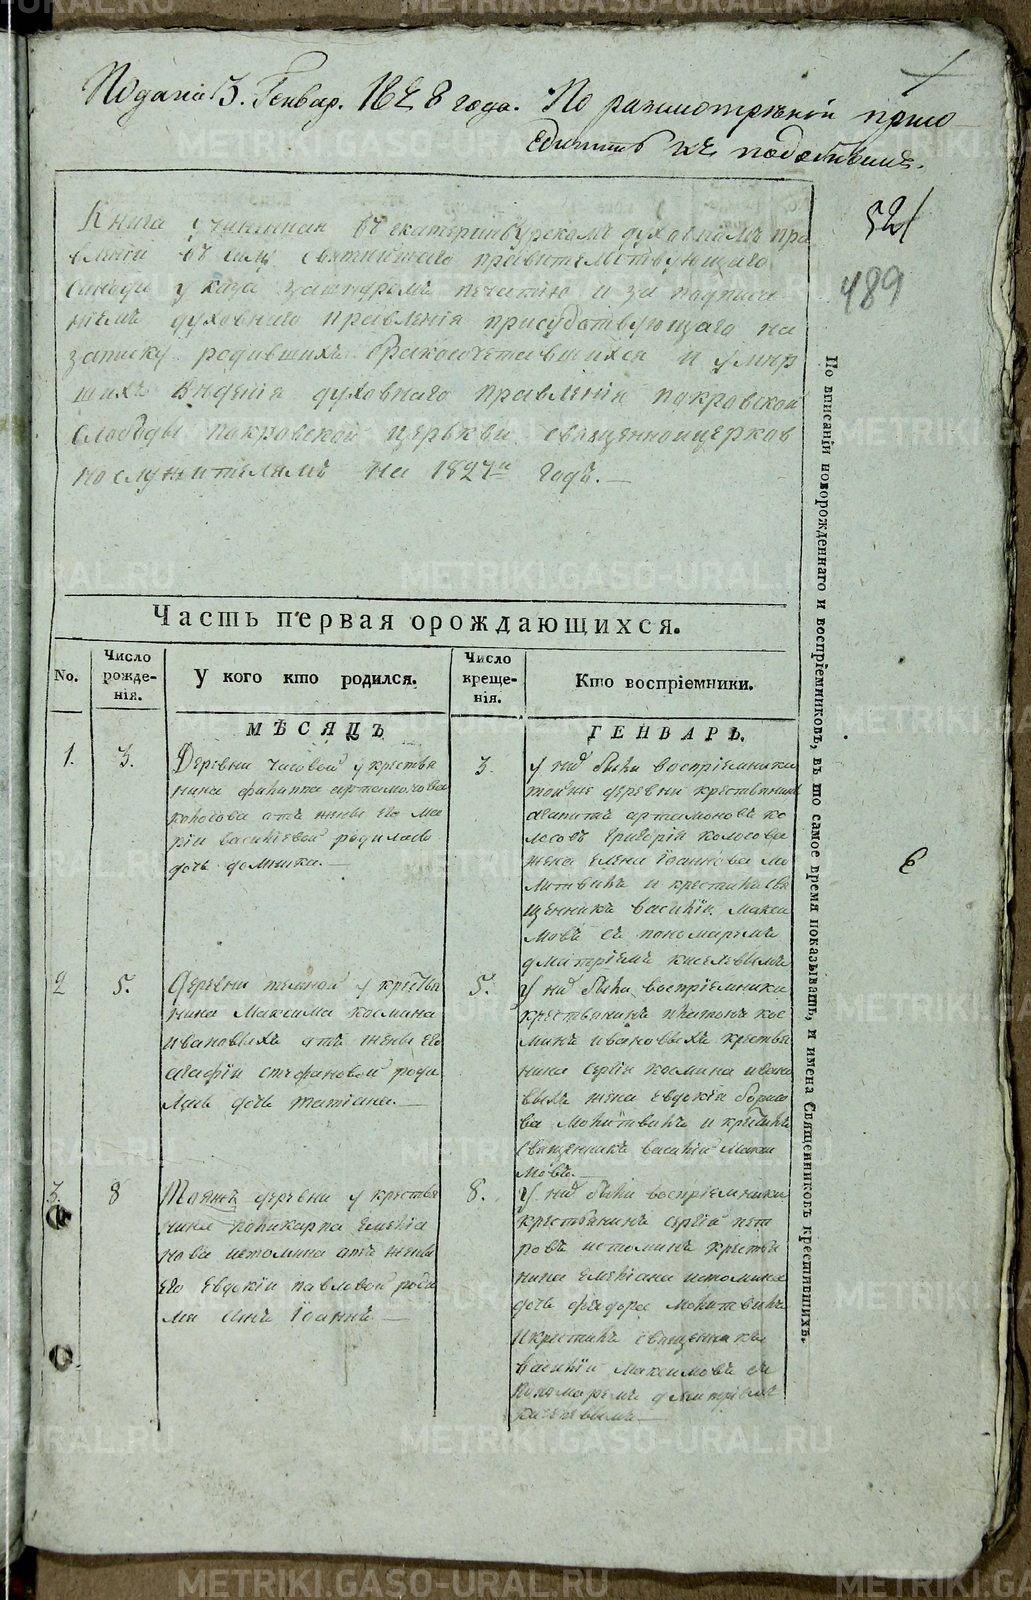 Подана 3. Генвар. 1828 года. По разсмотрѣнiи прiо
единить къ подобнымъ.
521
489
Книга учиненная въ екатеринбурскомъ духовномъ пра
вленiи въ силу святѣйшаго правительствующаго
Синода указа за шнуромъ печатiю и за подписа
нiемъ духовнаго правленiя присудствующаго на
записку родившихъ бракосочетавшихся и умир
шихъ вѣденiя духовнаго правленiя покровской
Слободы покровской церькви священноицерков
нослужителямъ на 1827й годъ.
Часть первая орождающихся.
No.
Число рожде- нiя.
У кого кто родился.
Число креще- нiя.
Кто воспрiемники.
МѢСЯЦЪ
ГЕНВАРЬ.
1.
3.
Деревни часовой у крестья
нина филиппа артамонова
колосова отъ жены его ма
рiи васильевой родилась
дочь домника.
3.
У ней были воспрiемники
тойже деревни крестьянинъ
артамоновъ ко
лосовъ григорiя колосова
жена елена Iоаннова мо
литвилъ и крестилъ Свя
щенникъ василiй Макси
мовъ съ пономаремъ
дмитрiемъ киселевымъ
2
5.
Деревни у крестья
нина Максима космина
ивановыхъ отъ жены его
агафiи стефановой роди
лась дочь татiана.
5.
У ней были воспрiемники
крестьянинъ платонъ кос
минъ ивановыхъ крестья
нина Сергiя космина ивано
выхъ жена Евдокiя борисо
ва молитвилъ и крестилъ
Священникъ василiй Макси
мовъ.
3.
8
Тояжъ деревни у крестья
нина поликарпа Емелiа
нова истомина отъ жены
его Евдокiи павловой роди
лся сынъ Iоаннъ
8.
У него были воспрiемники
крестьянинъ Сергiй пет
ровъ истоминъ крестья
нина Емелiана истомина
дочь федора молитвилъ
и крестилъ священникъ
василiй максимовъ съ
пономаремъ дмитрiемъ
киселевымъ
По вписанiи новорожденнаго и воспрiемниковъ, въ то самое время показывать, и имена Священниковъ крестившихъ.